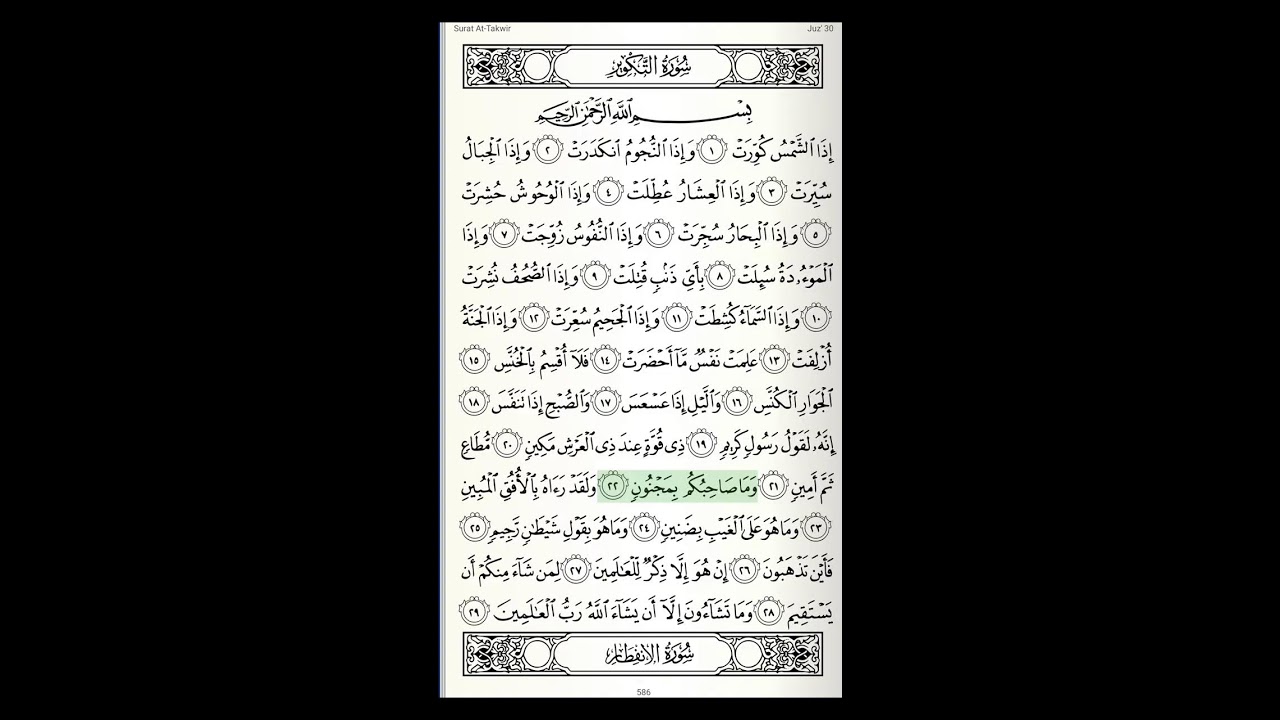 Surat At-Takwir
Juz' 30
سُورَةُ التَّكْوِيرِ
بِسْمِ ٱللَّهِ ٱلرَّحْمَٰنِ ٱلرَّحِيمِ
إِذَا ٱلشَّمْسُ كُوِّرَتْ ١ وَإِذَا ٱلنُّجُومُ ٱنكَدَرَتْ ٢ وَإِذَا ٱلْجِبَالُ
سُيِّرَتْ ٣ وَإِذَا ٱلْعِشَارُ عُطِّلَتْ ٤ وَإِذَا ٱلْوُحُوشُ حُشِرَتْ
٥ وَإِذَا ٱلْبِحَارُ سُجِّرَتْ ٦ وَإِذَا ٱلنُّفُوسُ زُوِّجَتْ ٧ وَإِذَا
ٱلْمَوْءُۥدَةُ سُئِلَتْ ٨ بِأَيِّ ذَنۢبٍ قُتِلَتْ ٩ وَإِذَا ٱلصُّحُفُ نُشِرَتْ
١٠ وَإِذَا ٱلسَّمَآءُ كُشِطَتْ ١١ وَإِذَا ٱلْجَحِيمُ سُعِّرَتْ ١٢ وَإِذَا ٱلْجَنَّةُ
أُزْلِفَتْ ١٣ عَلِمَتْ نَفْسٌ مَّآ أَحْضَرَتْ ١٤ فَلَآ أُقْسِمُ بِٱلْخُنَّسِ ١٥
ٱلْجَوَارِ ٱلْكُنَّسِ ١٦ وَٱلَّيْلِ إِذَا عَسْعَسَ ١٧ وَٱلصُّبْحِ إِذَا تَنَفَّسَ ١٨
إِنَّهُۥ لَقَوْلُ رَسُولٍ كَرِيمٍ ١٩ ذِى قُوَّةٍ عِندَ ذِى ٱلْعَرْشِ مَكِينٍ ٢٠ مُّطَاعٍ
ثَمَّ أَمِينٍ ٢١ وَمَا صَاحِبُكُم بِمَجْنُونٍ ٢٢ وَلَقَدْ رَءَاهُ بِٱلْأُفُقِ ٱلْمُبِينِ
٢٣ وَمَا هُوَ عَلَى ٱلْغَيْبِ بِضَنِينٍ ٢٤ وَمَا هُوَ بِقَوْلِ شَيْطَٰنٍ رَّجِيمٍ ٢٥
فَأَيْنَ تَذْهَبُونَ ٢٦ إِنْ هُوَ إِلَّا ذِكْرٌ لِّلْعَٰلَمِينَ ٢٧ لِمَن شَآءَ مِنكُمْ أَن
يَسْتَقِيمَ ٢٨ وَمَا تَشَآءُونَ إِلَّآ أَن يَشَآءَ ٱللَّهُ رَبُّ ٱلْعَٰلَمِينَ ٢٩
سُورَةُ الانفِطَارِ
586